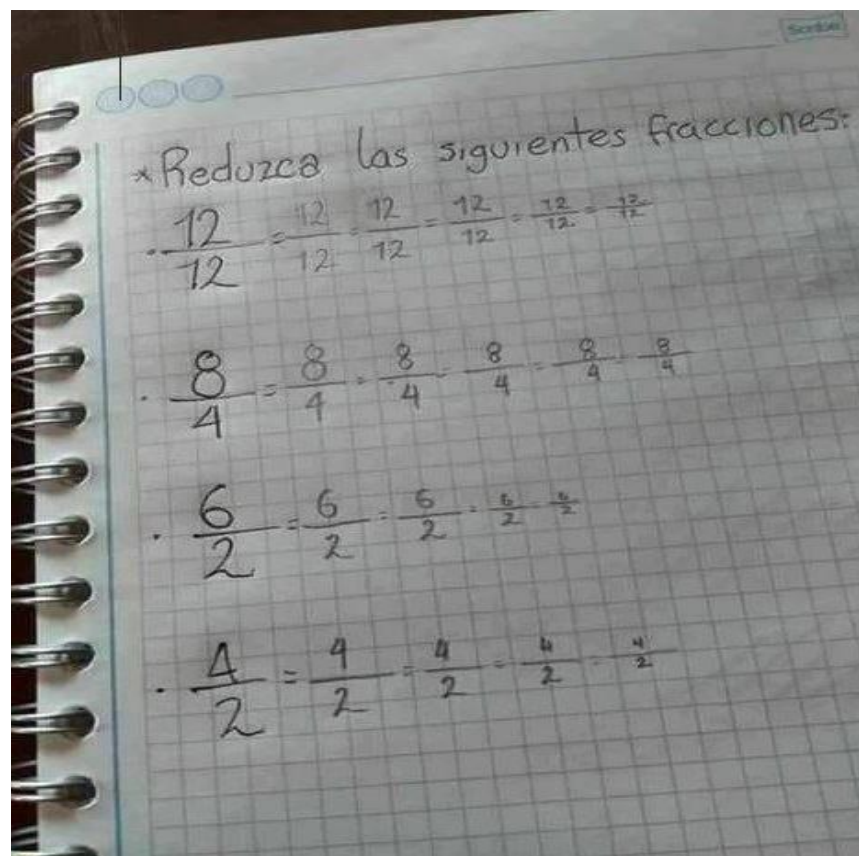 * Reduzca las siguientes fracciones:
· 12/12 = 12/12 = 12/12 = 12/12 = 12/12 = 12/12
· 8/4 = 8/4 = 8/4 = 8/4 = 8/4 = 8/4
· 6/2 = 6/2 = 6/2 = 6/2 = 6/2
· 4/2 = 4/2 = 4/2 = 4/2 = 4/2